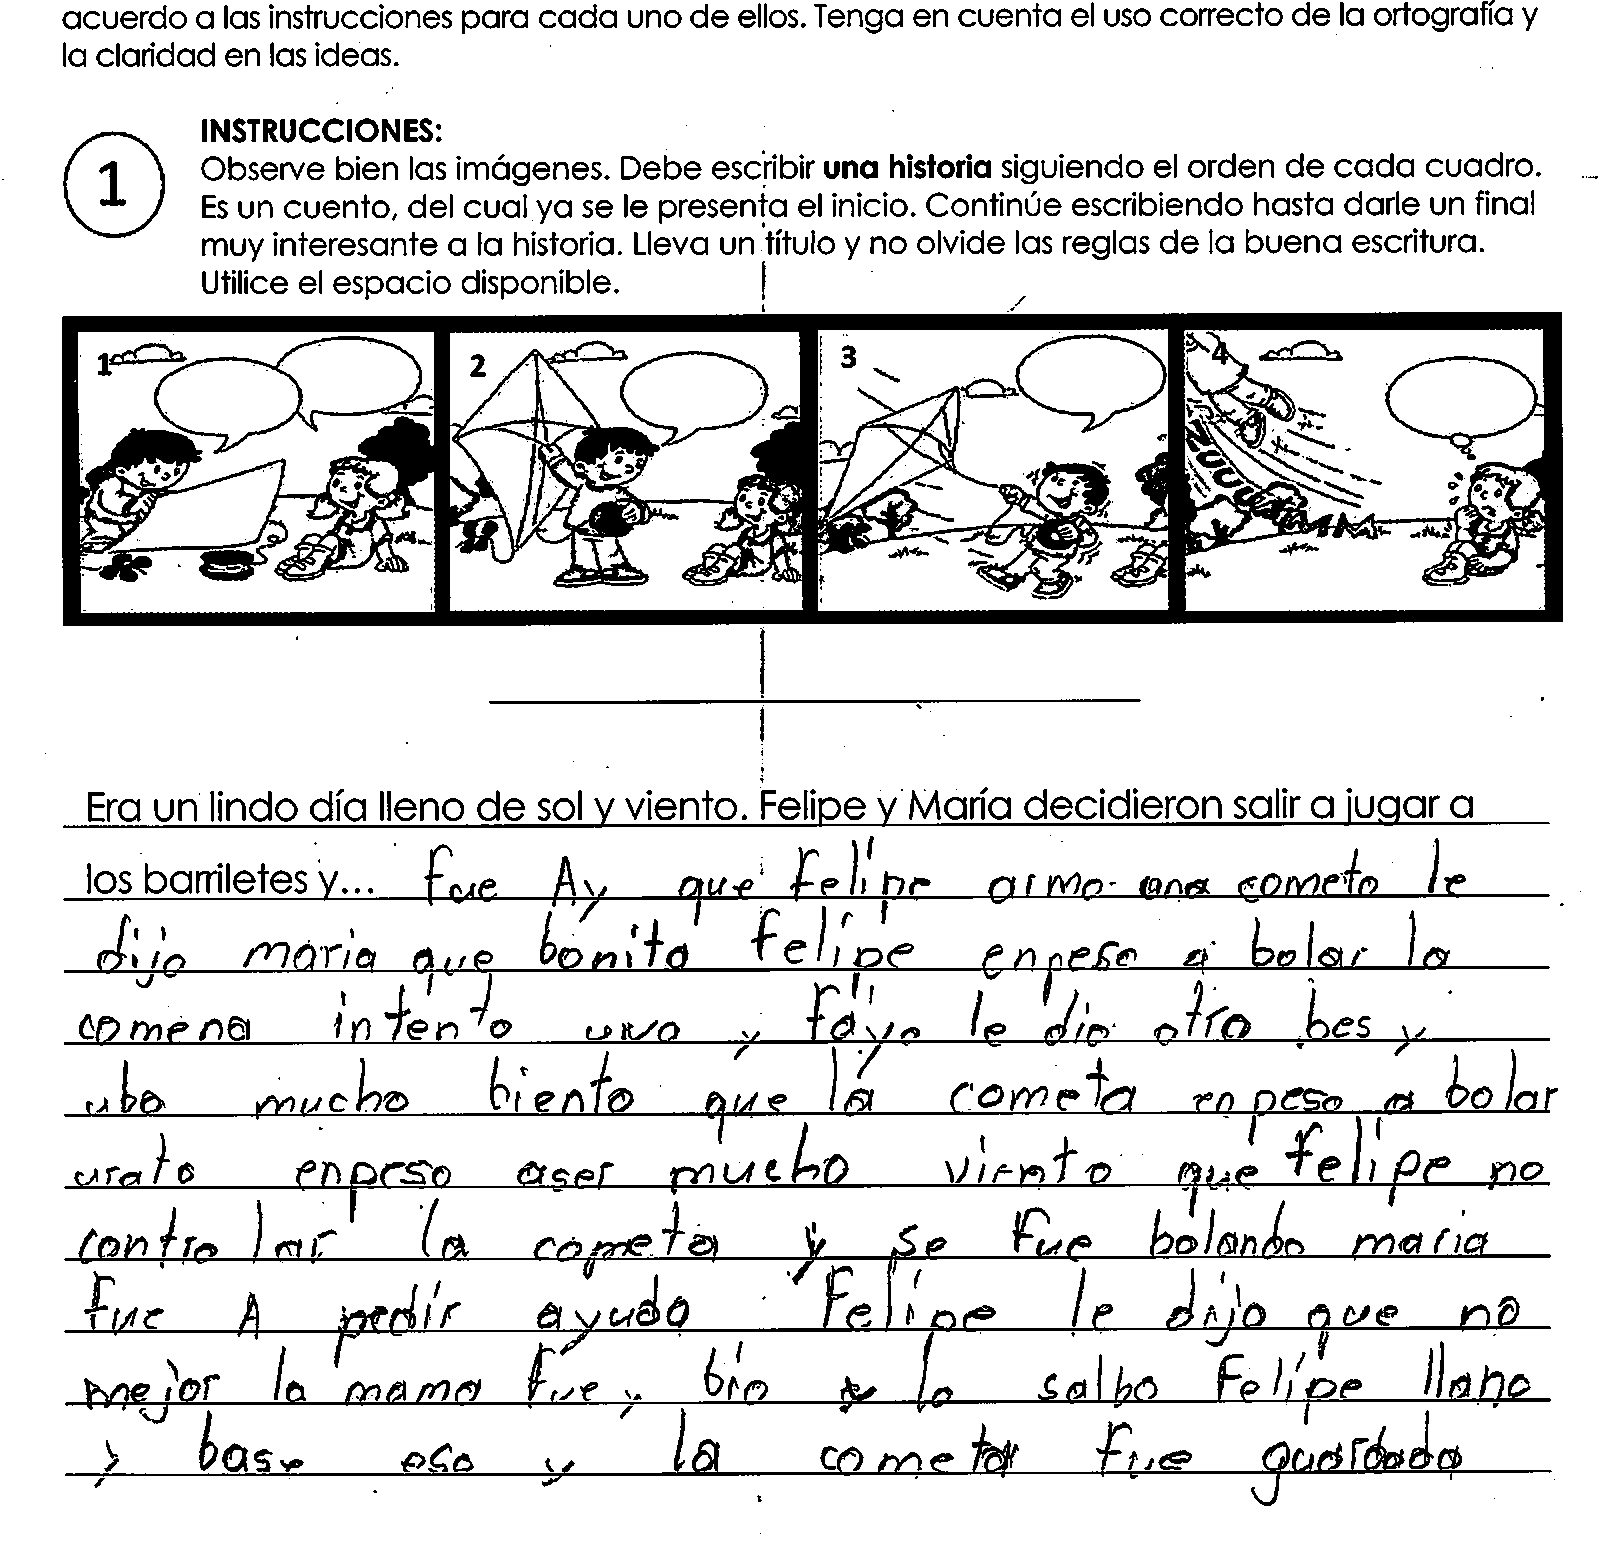 acuerdo a las instrucciones para cada uno de ellos. Tenga en cuenta el uso correcto de la ortografía y
la claridad en las ideas.
1
INSTRUCCIONES:
Observe bien las imágenes. Debe escribir una historia siguiendo el orden de cada cuadro.
Es un cuento, del cual ya se le presenta el inicio. Continúe escribiendo hasta darle un final
muy interesante a la historia. Lleva un título y no olvide las reglas de la buena escritura.
Utilice el espacio disponible.
1
2
3
4
ZUUUMMM
Era un lindo día lleno de sol y viento. Felipe y María decidieron salir a jugar a
los barriletes y... fue Ay que felipe armo una cometo le
dijo maria que bonita felipe enpeso a bolar la
comena intento uno y fayo le dio otro bes y
ubo mucho biento que la cometa enpeso a bolar
urato enpeso aser mucho viento que felipe no
controlar la cometa y se fue bolando maria
fue A pedir ayuda Felipe le dijo que no
mejor la mama fue y bio y lo salbo Felipe llano
y base eso y la cometa fue guardada